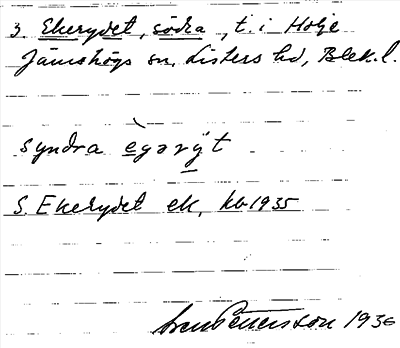 3. Ekerydet, södra, t. i Holje
Jämshögs sn, Listers hd, Blek. l.
syndra ègərÿt
S. Ekerydet ek, kb 1935
Sven Pettersson 1936